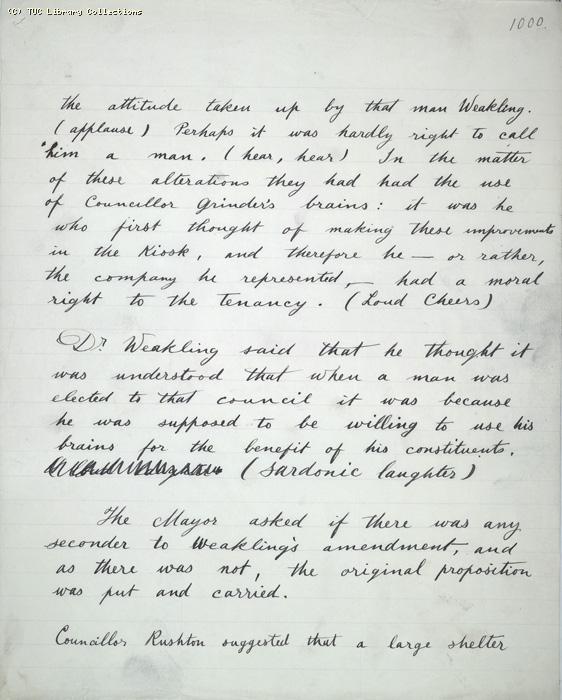 (C) TUC Library Collections
1000.
the attitude taken up by that man Weakling.
(applause) Perhaps it was hardly right to call
him a man. (hear, hear) In the matter
of these alterations they had had the use
of Councillor Grinder's brains: it was he
who first thought of making these improvements
in the Kiosk, and therefore he — or rather,
the company he represented, — had a moral
right to the tenancy. (Loud Cheers)
Dr. Weakling said that he thought it
was understood that when a man was
elected to that council it was because
he was supposed to be willing to use his
brains for the benefit of his constituents.
(sardonic laughter)
The Mayor asked if there was any
seconder to Weakling's amendment, and
as there was not, the original proposition
was put and carried.
Councillor Rushton suggested that a large shelter